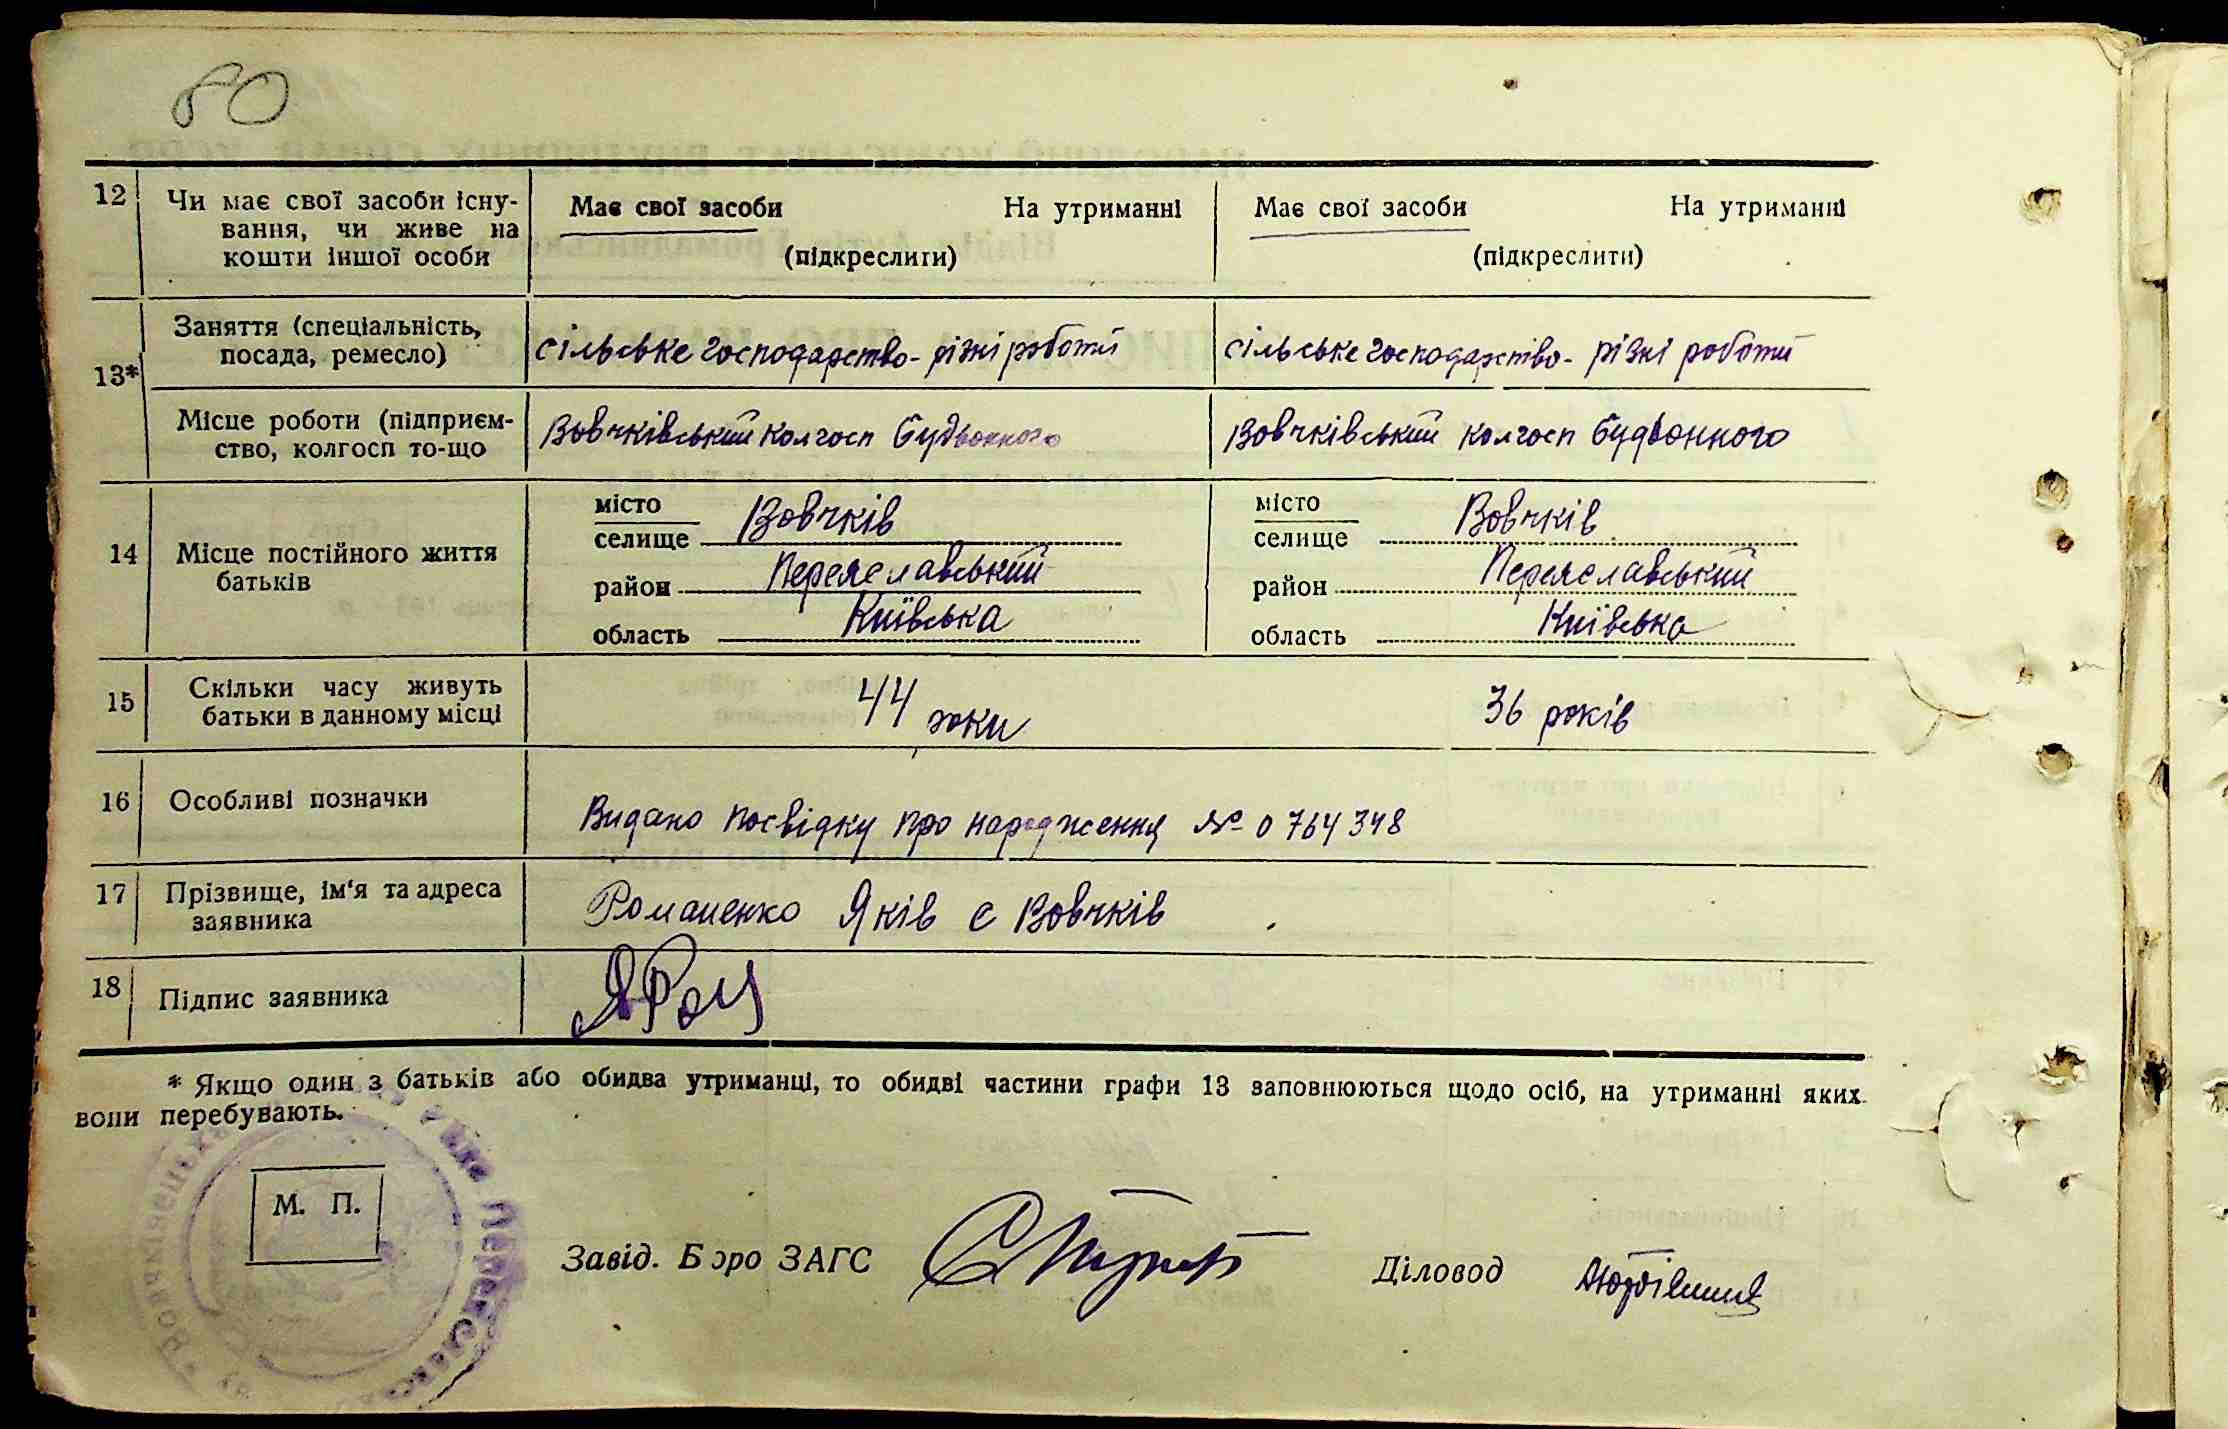 80
12 Чи має свої засоби існу-
вання, чи живе на
кошти іншої особи
Має свої засоби На утриманні
(підкреслити)
Має свої засоби На утриманні
(підкреслити)
13*
Заняття (спеціальність,
посада, ремесло)
сільське господарство - різні роботи
сільське господарство - різні роботи
Місце роботи (підприєм-
ство, колгосп то-що
Вовчківський колгосп Будьонного
Вовчківський колгосп Будьонного
14 Місце постійного життя
батьків
місто
селище Вовчків
район Переяславський
область Київська
місто
селище Вовчків
район Переяславський
область Київська
15 Скільки часу живуть
батьки в данному місці
44 роки
36 років
16 Особливі позначки
Видано посвідку про народження № 0764348
17 Прізвище, ім'я та адреса
заявника
Романенко Яків с Вовчків
18 Підпис заявника
ЯРом
* Якщо один з батьків або обидва утриманці, то обидві частини графи 13 заповнюються щодо осіб, на утриманні яких
вони перебувають.
М. П.
Завід. Бюро ЗАГС
Діловод